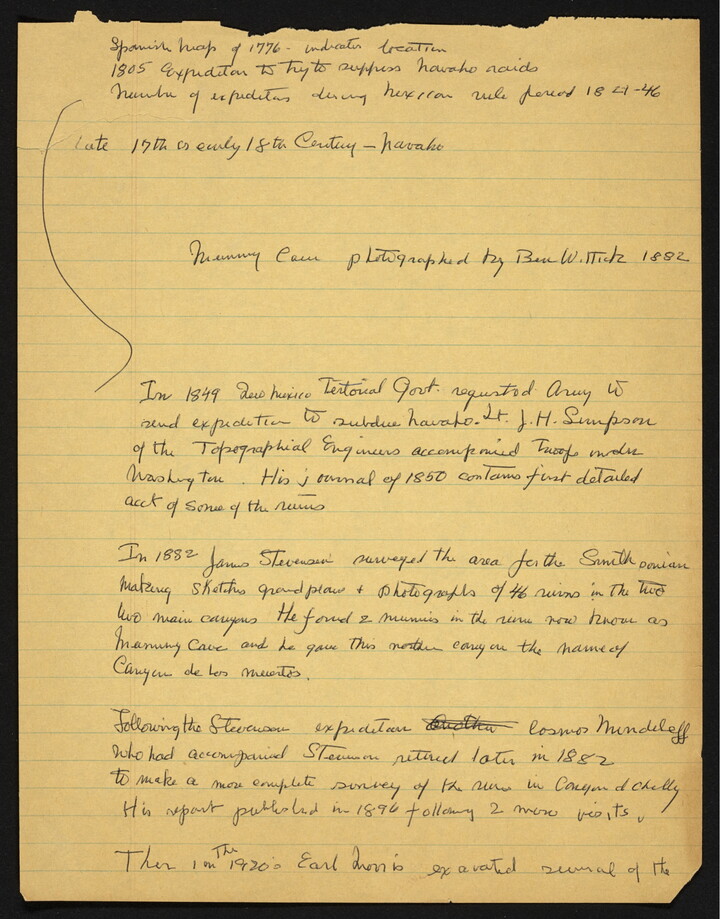 Spanish map of 1776 - indicates location
1805 Expedition to try to suppress Navaho raids
Number of expeditions during Mexican rule period 1821-46
Late 17th or early 18th Century - Navaho
Mummy Cave photographed by Ben Wittick 1882
In 1849 New Mexico Teritorial Govt. requested Army to
send expedition to subdue Navaho. Lt. J.H. Simpson
of the Topographial Engineers accompanied troops under
Washington. His journal of 1850 contains first detailed
acct of some of the ruins
In 1882 James Stevenson surveyed the area for the Smithsonian
making sketches ground plans + photographs of 46 ruins in the two
two main canyons He found 2 mummies in the ruin now known as
Mummy Cave and he gave this northern canyon the name of
Canyon de Los Muertos.
Following the Stevenson expedition Another Cosmos Mindeleff
who had accompanied Stevenson returned later in 1882
to make a more complete survey of the ruins in Canyon d Chelly
His report published in 1896 following 2 more visits.
Then in The 1920's Earl Morris excavated several of the